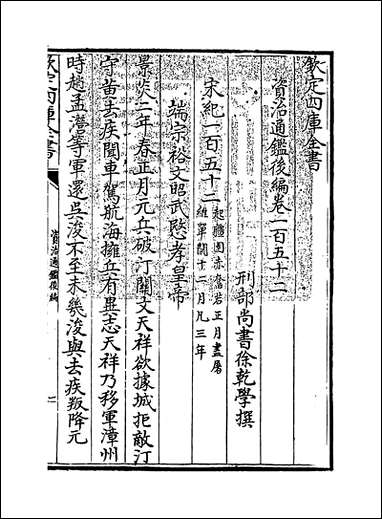 欽定四庫全書
資治通鑑後編卷一百五十二
刑部尚書徐乾學撰
宋紀一百五十二
起彊圉赤奮若正月盡屠
維單閼十二月凡三年
端宗裕文昭武愍孝皇帝
景炎二年春正月元兵破汀關文天祥欲據城拒敵汀
守黄去疾聞車駕航海擁兵有異志天祥乃移軍漳州
時趙孟濴等軍還吳浚不至未幾浚與去疾叛降元
欽定四庫全書
資治通鑑後編
一